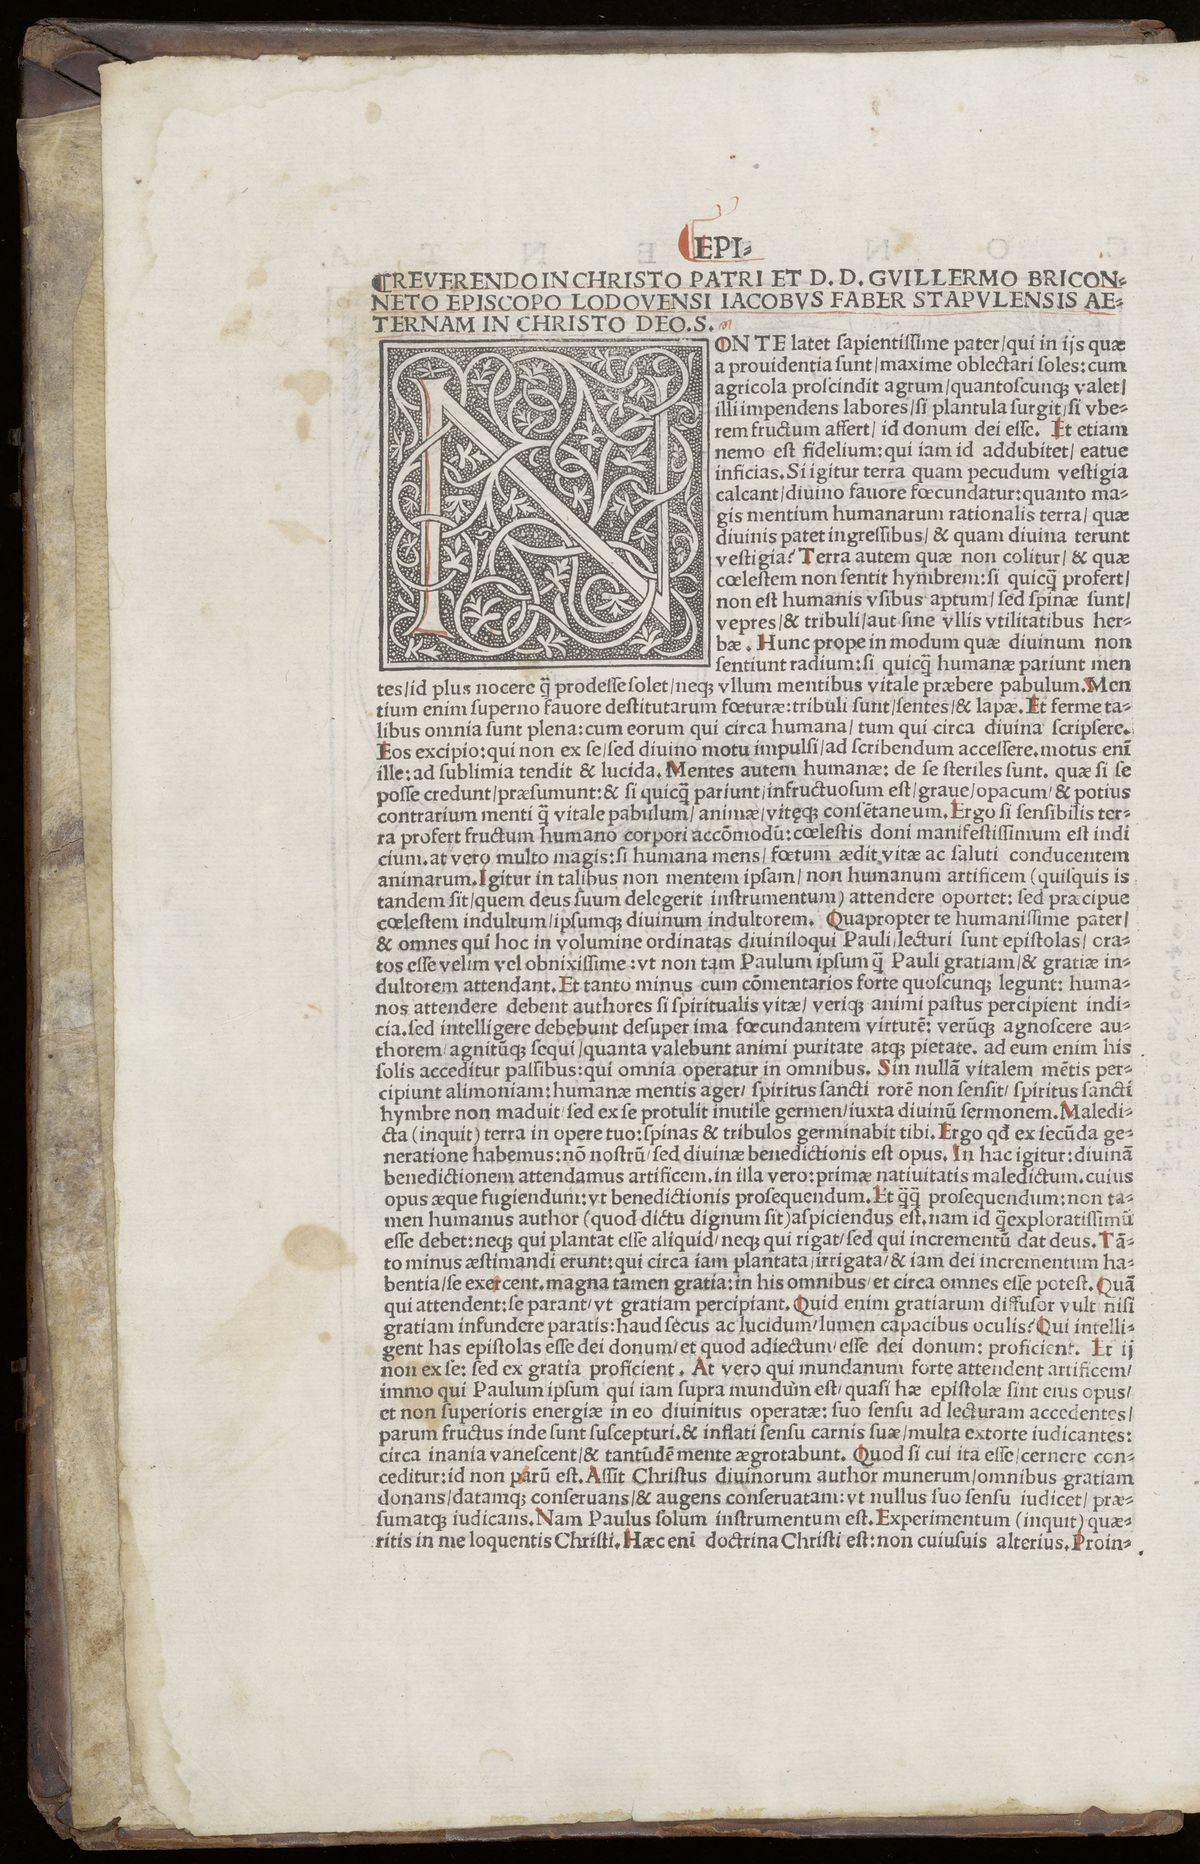 EPI⸗
¶REVERENDO IN CHRISTO PATRI ET D. D. GVILLERMO BRICON⸗
NETO EPISCOPO LODOVENSI IACOBVS FABER STAPVLENSIS AE⸗
TERNAM IN CHRISTO DEO.S.
NON TE latet sapientissime pater/qui in ijs quæ
a prouidentia sunt/maxime oblectari soles:cum
agricola proscindit agrum/quantoscunqꝫ valet/
illi impendens labores/si plantula surgit/si vbe⸗
rem fructum affert/ id donum dei esse. Et etiam
nemo est fidelium:qui iam id addubitet/ eatue
inficias.Si igitur terra quam pecudum vestigia
calcant/diuino fauore fœcundatur:quanto ma⸗
gis mentium humanarum rationalis terra/ quæ
diuinis patet ingressibus/ & quam diuina terunt
vestigia? Terra autem quæ non colitur/ & quæ
cœlestem non sentit hymbrem:si quicq̃ profert/
non est humanis vsibus aptum/sed spinæ sunt/
vepres/& tribuli/aut sine vllis vtilitatibus her⸗
bæ. Hunc prope in modum quæ diuinum non
sentiunt radium:si quicq̃ humanæ pariunt men
tes/id plus nocere q̃ prodesse solet/neqꝫ vllum mentibus vitale præbere pabulum.Men
tium enim superno fauore destitutarum fœturæ:tribuli sunt/sentes/& lapæ.Et ferme ta⸗
libus omnia sunt plena:cum eorum qui circa humana/ tum qui circa diuina scripsere.
Eos excipio:qui non ex se/sed diuino motu impulsi/ad scribendum accessere.motus enĩ
ille:ad sublimia tendit & lucida.Mentes autem humanæ: de se steriles sunt. quæ si se
posse credunt/præsumunt:& si quicq̃ pariunt/infructuosum est/graue/opacum/ & potius
contrarium menti q̃ vitale pabulum/ animæ/vitęqꝫ consẽtaneum.Ergo si sensibilis ter⸗
ra profert fructum humano corpori accõmodũ:cœlestis doni manifestissimum est indi
cium.at vero multo magis:si humana mens/ fœtum ædit vitæ ac saluti conducentem
animarum.Igitur in talibus non mentem ipsam/ non humanum artificem (quisquis is
tandem sit/quem deus suum delegerit instrumentum) attendere oportet: sed præcipue
cœlestem indultum/ipsumqꝫ diuinum indultorem. Quapropter te humanissime pater/
& omnes qui hoc in volumine ordinatas diuiniloqui Pauli/lecturi sunt epistolas/ ora⸗
tos esse velim vel obnixissime:vt non tam Paulum ipsum q̃ Pauli gratiam/& gratiæ in⸗
dultorem attendant.Et tanto minus cum cõmentarios forte quoscunqꝫ legunt: huma⸗
nos attendere debent authores si spiritualis vitæ/ veriqꝫ animi pastus percipient indi⸗
cia.sed intelligere debebunt desuper ima fœcundantem virtutẽ: verũqꝫ agnoscere au⸗
thorem/agnitũqꝫ sequi/quanta valebunt animi puritate atqꝫ pietate. ad eum enim his
solis acceditur passibus:qui omnia operatur in omnibus. Sin nullã vitalem mẽtis per⸗
cipiunt alimoniam:humanæ mentis ager/ spiritus sancti rorẽ non sensit/ spiritus sancti
hymbre non maduit/sed ex se protulit inutile germen/iuxta diuinũ sermonem.Maledi⸗
cta (inquit) terra in opere tuo:spinas & tribulos germinabit tibi.Ergo qđ ex secũda ge⸗
neratione habemus:nõ nostrũ/sed diuinæ benedictionis est opus.In hac igitur:diuinã
benedictionem attendamus artificem.in illa vero:primæ natiuitatis maledictum.cuius
opus æque fugiendum:vt benedictionis prosequendum.Et q̃q̃ prosequendum:non ta⸗
men humanus author (quod dictu dignum sit)aspiciendus est.nam id q̃exploratissimũ
esse debet:neqꝫ qui plantat esse aliquid/neqꝫ qui rigat/sed qui incrementũ dat deus.Tã⸗
to minus æstimandi erunt:qui circa iam plantata/irrigata/& iam dei incrementum ha⸗
bentia/se exercent.magna tamen gratia:in his omnibus/et circa omnes esse potest.Quã
qui attendent:se parant/vt gratiam percipiant.Quid enim gratiarum diffusor vult nisi
gratiam infundere paratis:haud secus ac lucidum/lumen capacibus oculis?Qui intelli⸗
gent has epistolas esse dei donum/et quod adiectum/esse dei donum: proficient. Et ij
non ex se: sed ex gratia proficient. At vero qui mundanum forte attendent artificem/
immo qui Paulum ipsum qui iam supra mundum est/quasi hæ epistolæ sint eius opus/
et non superioris energiæ in eo diuinitus operatæ: suo sensu ad lecturam accedentes/
parum fructus inde sunt suscepturi.& inflati sensu carnis suæ/multa extorte iudicantes:
circa inania vanescent/& tantũdẽ mente ægrotabunt. Quod si cui ita esse/cernere con⸗
ceditur:id non parũ est.Assit Christus diuinorum author munerum/omnibus gratiam
donans/datamqꝫ conseruans/& augens conseruatam:vt nullus suo sensu iudicet/ præ⸗
sumatqꝫ iudicans.Nam Paulus solum instrumentum est.Experimentum (inquit) quæ⸗
ritis in me loquentis Christi.Hæc enĩ doctrina Christi est:non cuiusuis alterius.Proin⸗